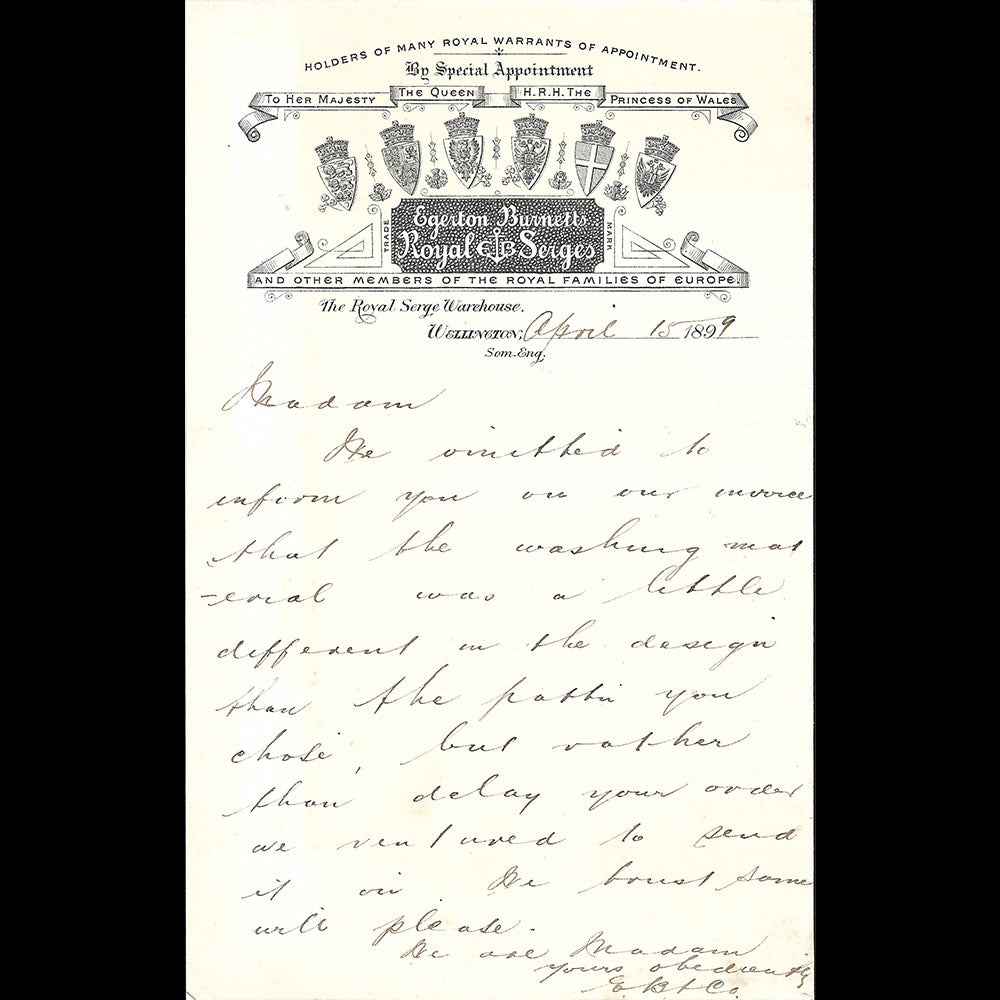 HOLDERS OF MANY ROYAL WARRANTS OF APPOINTMENT.
By Special Appointment
To Her Majesty The Queen H.R.H. The Princess of Wales
Egerton Burnetts
TRADE Royal EB Serges MARK
AND OTHER MEMBERS OF THE ROYAL FAMILIES OF EUROPE.
The Royal Serge Warehouse.
Wellington, April 15 1899
Som. Eng.
Madam
We omitted to
inform you on our invoice
that the washing mat
-erial was a little
different in the design
than the pattn you
chose, but rather
than delay your order
we ventured to send
it on We trust same
will please.
We are Madam
yours obediently
E. B & Co.